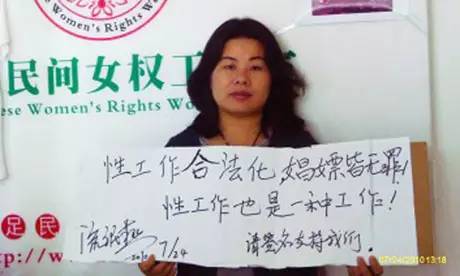 Women's Rights Wo
民间女权工
ese Women's Rights Wo
性工作合法化,娼嫖皆无罪!
性工作也是一种工作!
7/24
请签名支持我们.
2010
足民
http://w
07/24/2010 13:18